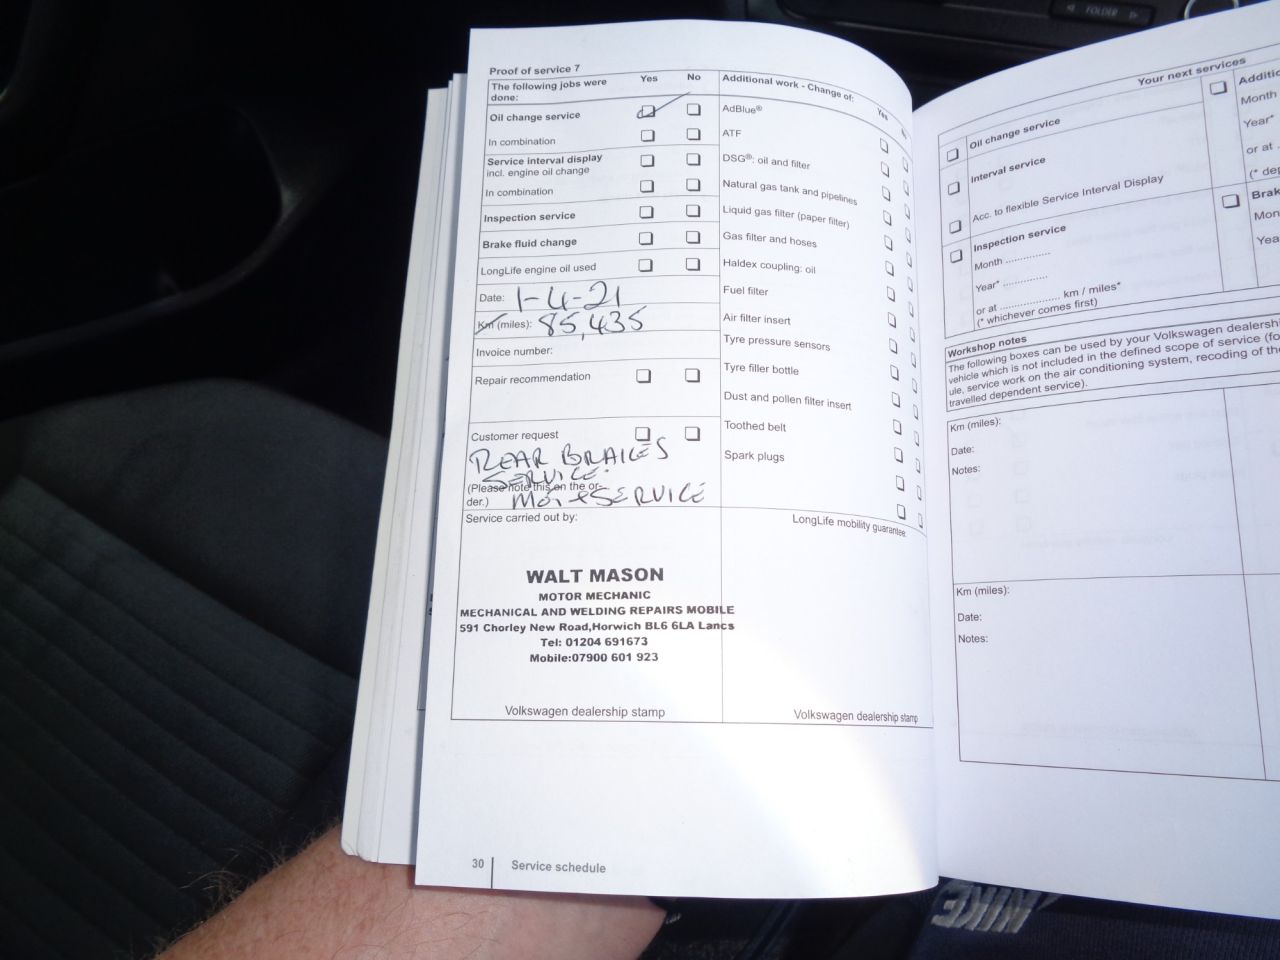 FOLDER
Proof of service 7
The following jobs were done: Yes No
Oil change service
In combination
Service interval display
incl. engine oil change
In combination
Inspection service
Brake fluid change
LongLife engine oil used
Date: 1-4-21
Km (miles): 85,435
Invoice number:
Repair recommendation
Customer request
REAR BRAKES
SERVICE.
(Please note this on the or-
der.) MOT + SERVICE
Service carried out by:
WALT MASON
MOTOR MECHANIC
MECHANICAL AND WELDING REPAIRS MOBILE
591 Chorley New Road,Horwich BL6 6LA Lancs
Tel: 01204 691673
Mobile:07900 601 923
Volkswagen dealership stamp
Additional work - Change of: Yes No
AdBlue®
ATF
DSG®: oil and filter
Natural gas tank and pipelines
Liquid gas filter (paper filter)
Gas filter and hoses
Haldex coupling: oil
Fuel filter
Air filter insert
Tyre pressure sensors
Tyre filler bottle
Dust and pollen filter insert
Toothed belt
Spark plugs
LongLife mobility guarantee:
Volkswagen dealership stamp
30 Service schedule
Your next services
Oil change service
Interval service
Acc. to flexible Service Interval Display
Inspection service
Month ..............
Year* ..............
or at .................... km / miles*
(* whichever comes first)
Additio
Month
Year*
or at .
(* dep
Brak
Mon
Yea
Workshop notes
The following boxes can be used by your Volkswagen dealersh
vehicle which is not included in the defined scope of service (fo
ule, service work on the air conditioning system, recoding of the
travelled dependent service).
Km (miles):
Date:
Notes:
Km (miles):
Date:
Notes:
NIKE